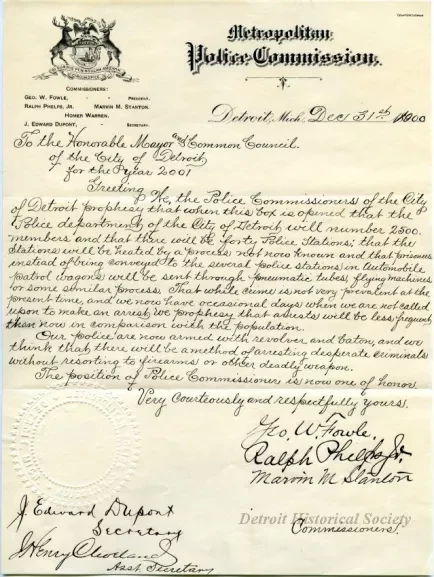 Metropolitan
Police Commission.
COMMISSIONERS:
GEO. W. FOWLE, - - PRESIDENT.
RALPH PHELPS, JR. MARVIN M. STANTON.
HOMER WARREN.
J. EDWARD DUPONT, - SECRETARY.
Detroit, Mich. Dec 31st 1900
To the Honorable Mayor and Common Council.
of the City of Detroit
for the year 2001
Greeting We, the Police Commissioners of the City
of Detroit prophesy that when this box is opened that the
Police department of the City of Detroit will number 2500
members and that there will be forty Police Stations; that the
Stations will be heated by a process not now known and that prisoners
instead of being conveyed to the several police stations in Automobile
patrol wagons will be sent through pneumatic tubes, flying machines
or some similar process. That while crime is not very prevalent at the
present time, and we now have occasional days when we are not called
upon to make an arrest, we prophesy that arrests will be less frequent
than now in comparison with the population.
Our Police are now armed with revolver and baton, and we
think that there will be a method of arresting desperate criminals
without resorting to firearms or other deadly weapon.
The position of Police Commissioner is now one of honor.
Very Courteously and respectfully yours.
Geo. W. Fowle.
Ralph Phelps Jr.
Marvin M Stanton
Commissioners.
J. Edward Dupont
Secretary
J Henry Cleveland
Asst. Secretary
Detroit Historical Society